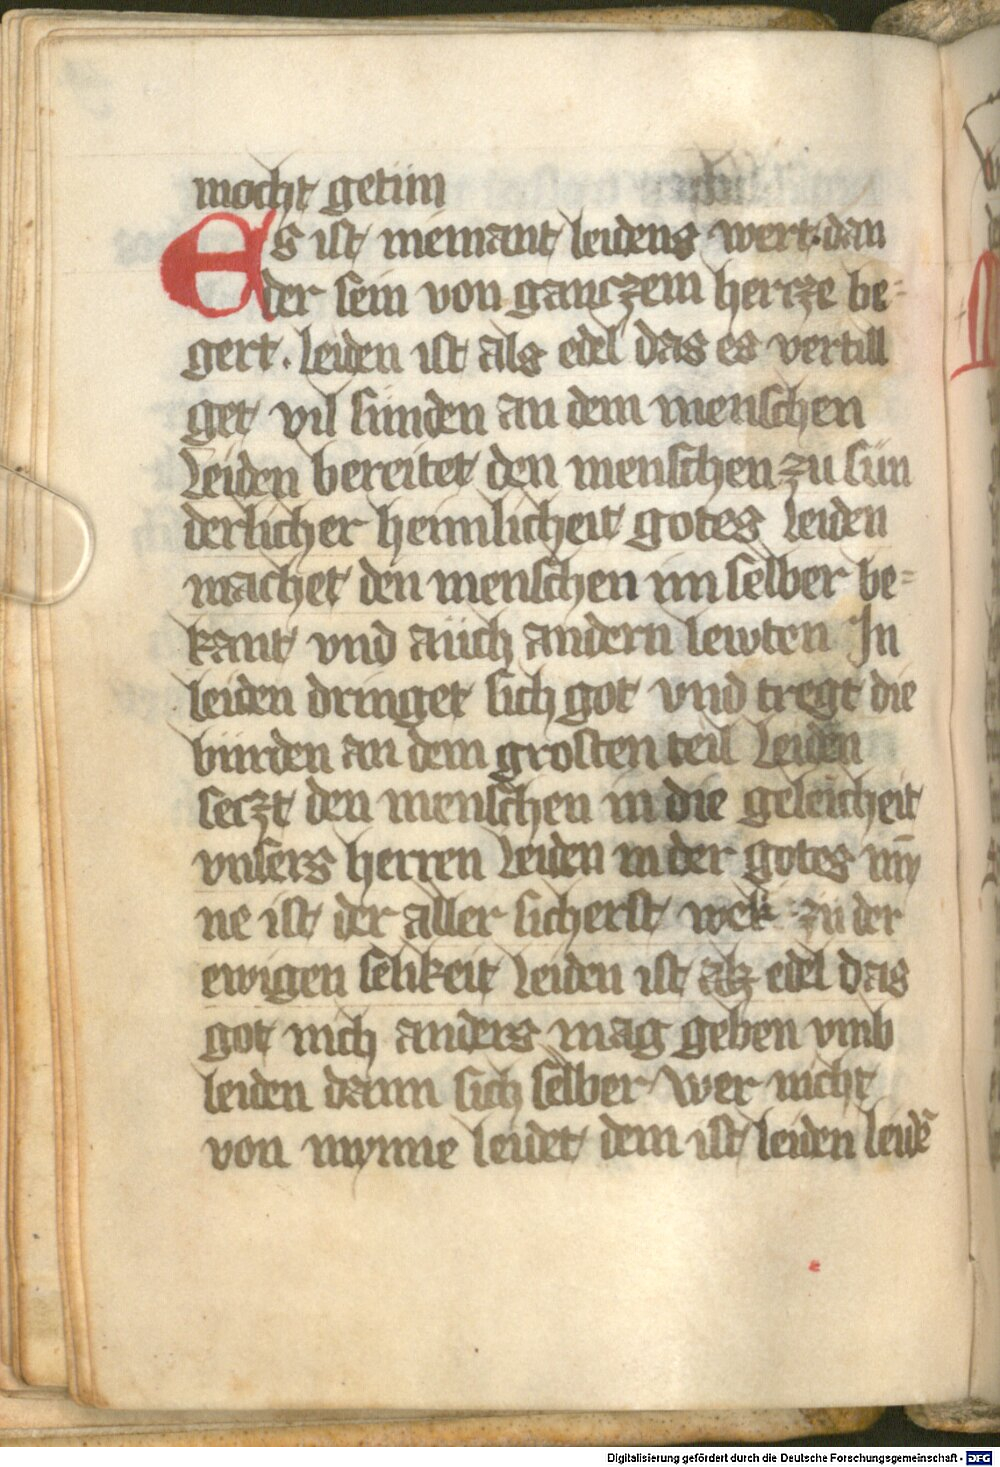 mocht getun
Es ist niemant leidens wert. dan
der sein von ganczem hercze be-
gert. Leiden ist als edel das es vertill
get vil sunden an dem menschen
Leiden bereitet den menschen zu sün
derlicher heimlicheit gotes Leiden
machet den menschen im selber be-
kant vnd auch andern lewten In
leiden dringet sich got vnd tregt die
bürden an dem grosten teil Leiden
seczt den menschen in die geleicheit
vnsers herren Leiden in der gotes mȳ
ne ist der aller sicherst wek zu der
ewigen selikeit Leiden ist alz edel das
got nich anders mag geben vmb
leiden dann sich selber Wer nicht
von mynne leidet dem ist leiden leidē
Digitalisierung gefördert durch die Deutsche Forschungsgemeinschaft - DFG